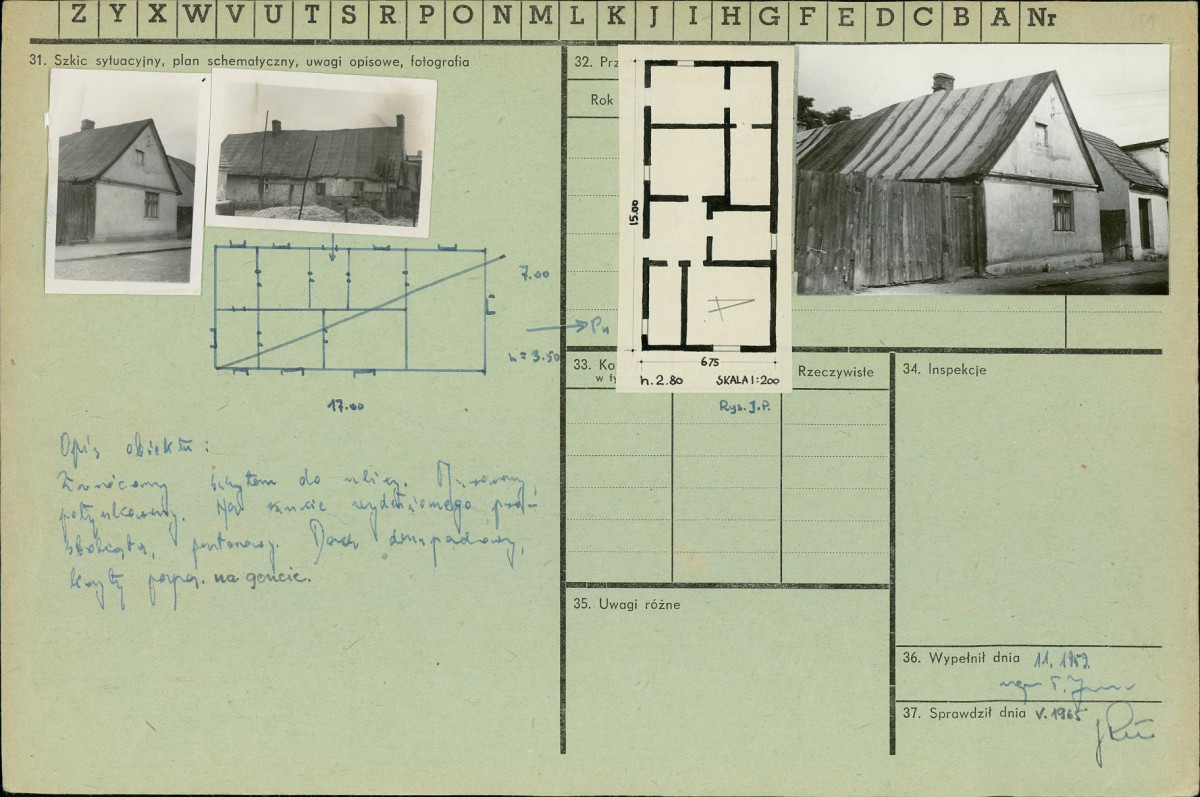 Z Y X W V U T S R P O N M L K J I H G F E D C B A Nr
31. Szkic sytuacyjny, plan schematyczny, uwagi opisowe, fotografia
32. Prz
Rok
15.00
675
h. 2.80 SKALA 1:200
Rys. J.P.
7.00
Pn
h = 3.50
17.00
Opis obiektu:
Zwrócony szczytem do ulicy. Murowany,
potynkowany. Na rzucie wydłużonego pro-
stokąta, parterowy. Dach dwuspadowy,
kryty papą. na goncie.
33. Ko
w ty
Rzeczywiste
34. Inspekcje
35. Uwagi różne
36. Wypełnił dnia 11. 1959.
mgr
37. Sprawdził dnia V. 1965